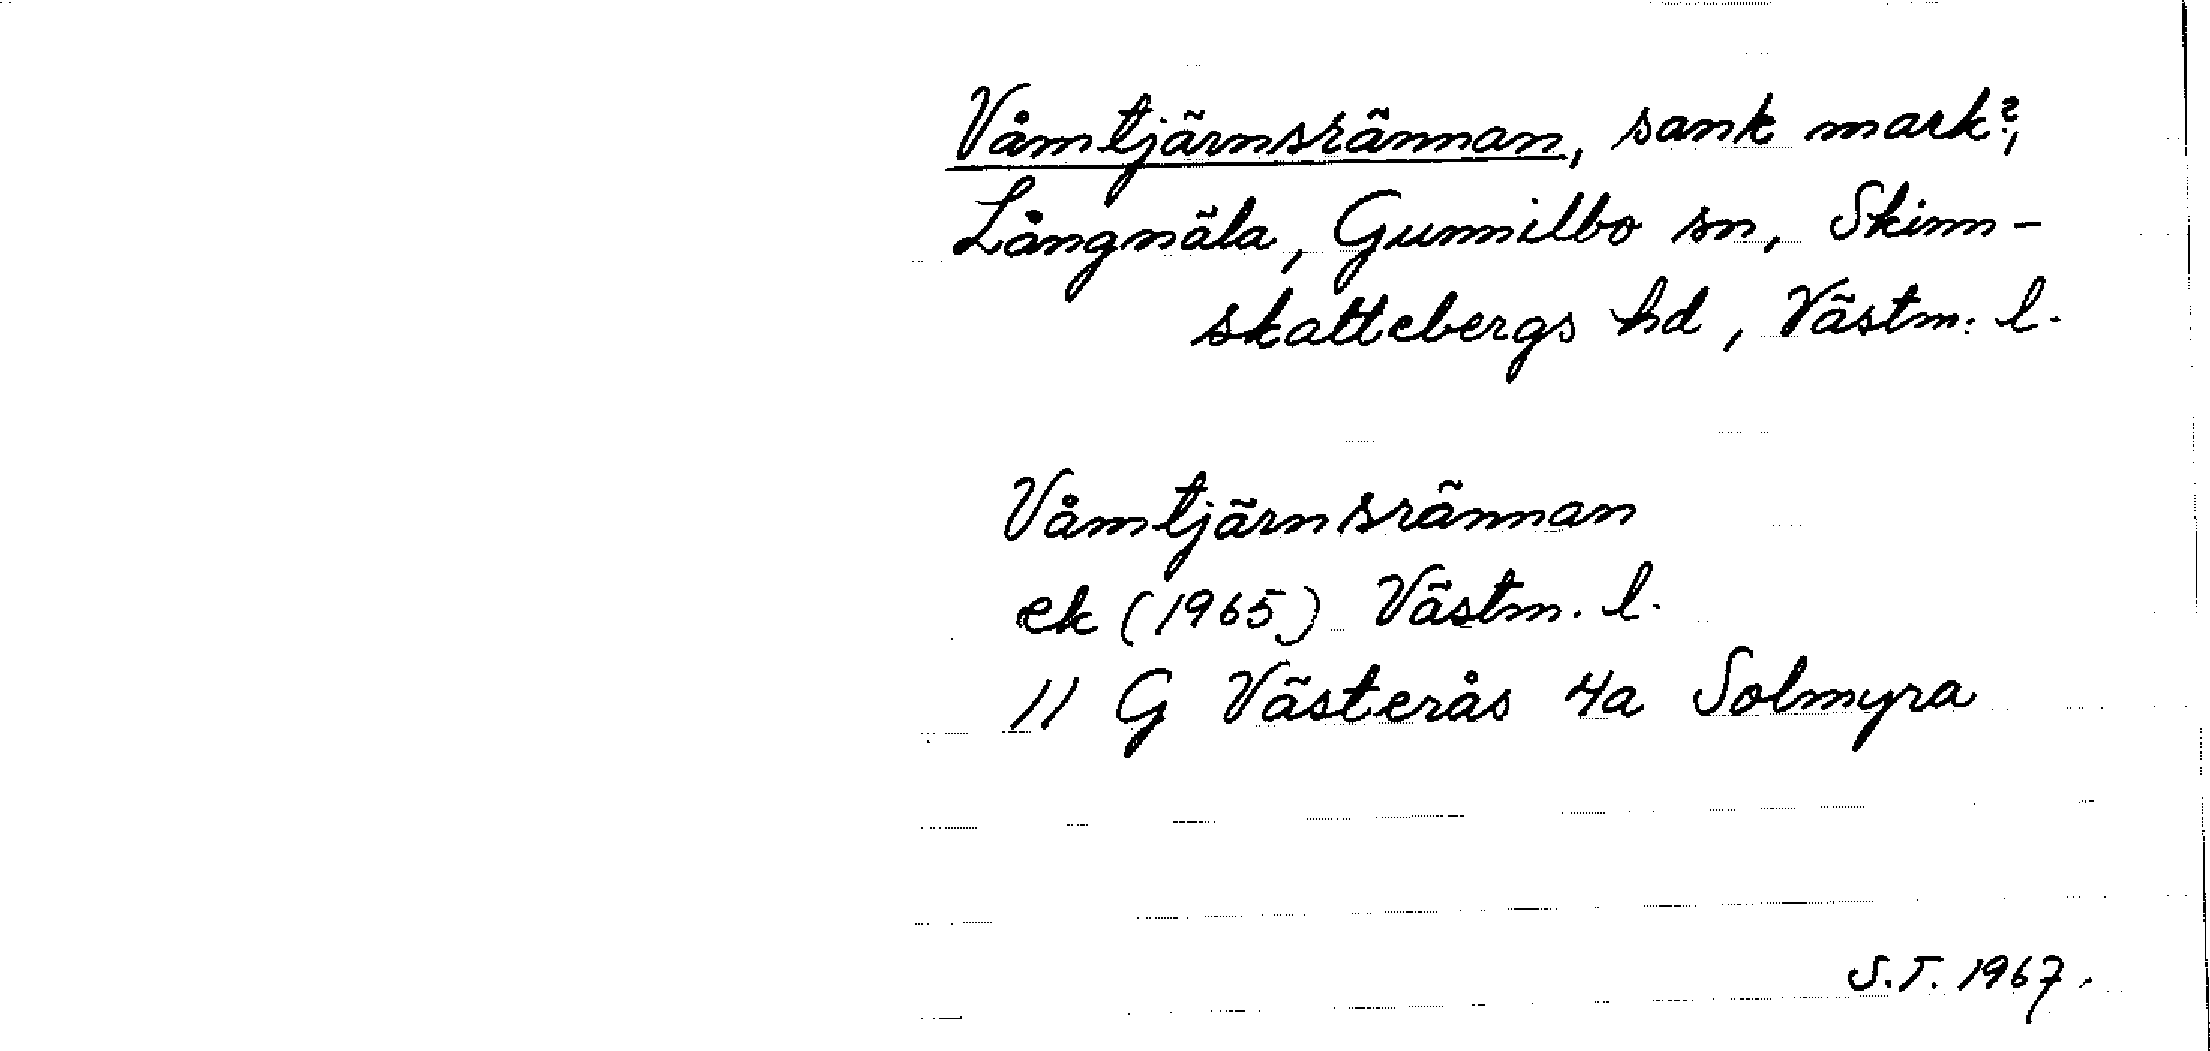 Våmtjärnsrännan, sank mark?,
Långnäla, Gunnilbo sn, Skinn-
skattebergs hd, Västm. l.
Våmtjärnsrännan
ek (1965) Västm. l.
11 G Västerås 4a Solmyra
S.T. 1967.